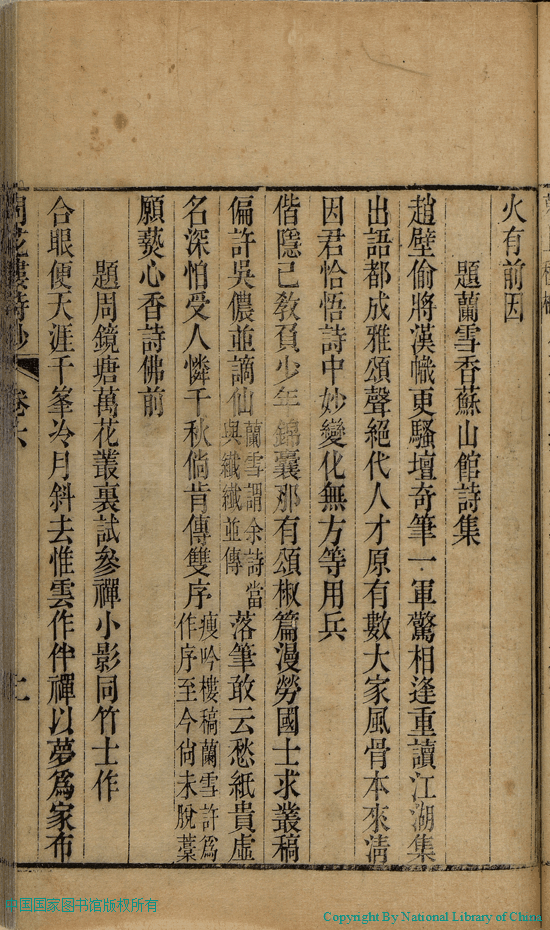 火有前因
題蘭雪香蘇山館詩集
趙壁偷將漢幟更騷壇奇筆一軍驚相逢重讀江湖集
出語都成雅頌聲絕代人才原有數大家風骨本來清
因君恰悟詩中妙變化無方等用兵
偕隱已教負少年錦囊那有頌椒篇漫勞國士求叢稿
偏許吳儂並謫仙蘭雪謂余詩當與纖纖並傳落筆敢云愁紙貴虛
名深怕受人憐千秋倘肯傳雙序瘦吟樓稿蘭雪許為作序至今尙未脫藁
願爇心香詩佛前
題周鏡塘萬花叢裏試參禪小影同竹士作
合眼便天涯千峯冷月斜去惟雲作伴禪以夢為家布
花樓詩鈔 卷六
中国国家图书馆版权所有
Copyright By National Library of China